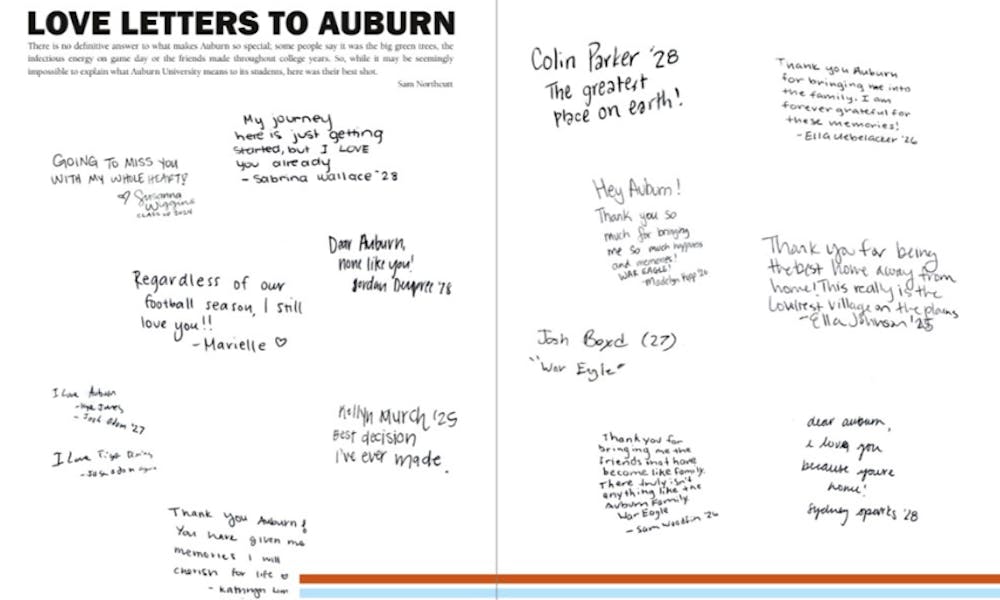 LOVE LETTERS TO AUBURN
There is no definitive answer to what makes Auburn so special; some people say it was the big green trees, the
infectious energy on game day or the friends made throughout college years. So, while it may be seemingly
impossible to explain what Auburn University means to its students, here was their best shot.
Sam Northcutt
GOING TO MISS YOU
WITH MY WHOLE HEART!
Susanna
Wiggins
CLASS OF 2024
My journey
here is just getting
started, but I LOVE
you already
- Sabrina Wallace '28
Dear Auburn,
none like you!
Jordan Dupree '28
Regardless of our
football season, I still
love you!!
- Marielle ♡
I Love Auburn
- Josh Adam '27
I Love Tiger Dining
Kellyn Murch '25
Best decision
I've ever made.
Thank you Auburn!
You have given me
memories I will
cherish for life
- Kathryn
Colin Parker '28
The greatest
place on earth!
Thank you Auburn
for bringing me into
the family. I am
forever grateful for
these memories!
- Ella Uebelacker '26
Hey Auburn!
Thank you so
much for bringing
me so much
and memories!
WAR EAGLE!
- Madelyn
Thank you for being
the best home away from
home! This really is the
loveliest village on the plains
- Ella Johnson '25
Josh Boyd (27)
"War Eagle"
Thank you for
bringing me the
friends that have
become like family.
There truly isn't
anything like the
Auburn Family.
War Eagle
- Sam '26
dear auburn,
i love you
because youre
home!
Sydney sparks '28